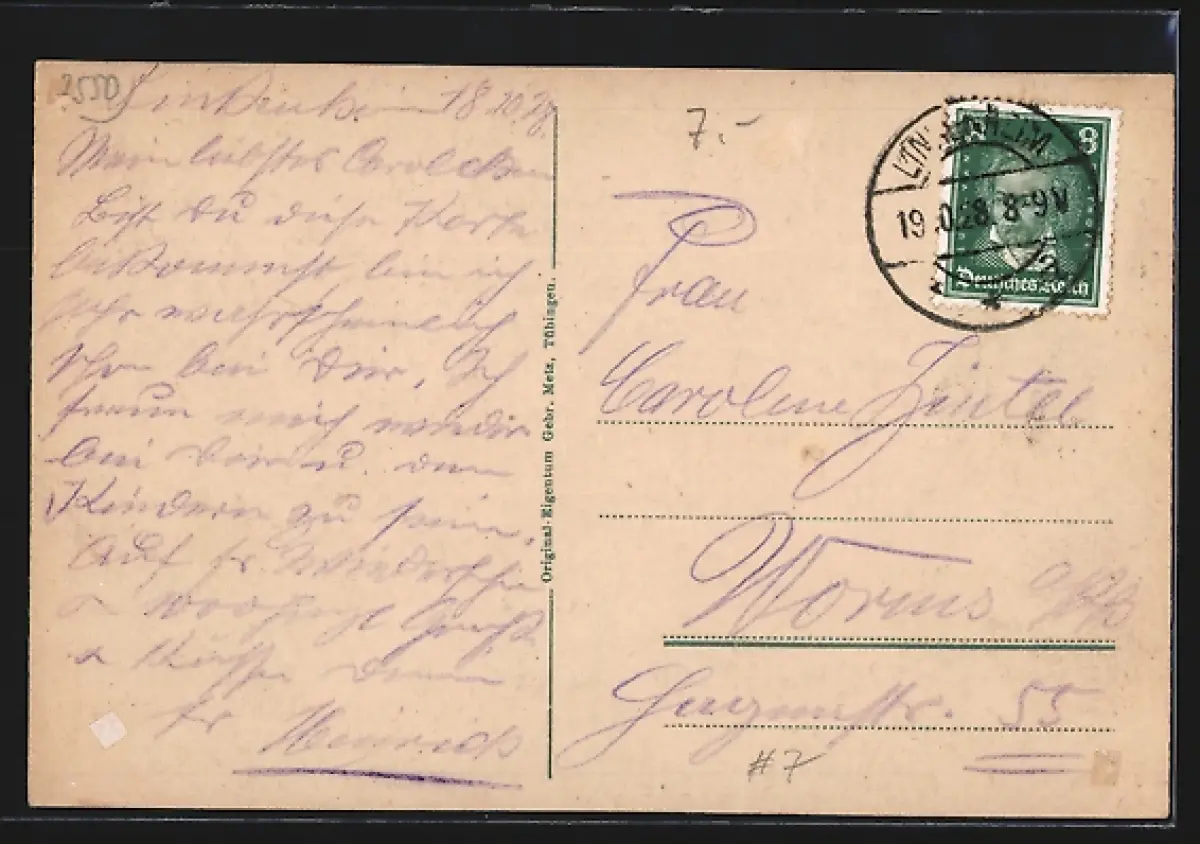 2550
Linkenheim 18.10.28
Mein liebstes Carolchen
Bist Du diese Karte
bekommst bin ich
sehr wahrscheinlich
schon bei Dir, Ich
freue mich wieder
bei Dir u. den
Kindern zu sein.
Auf Wiedersehn
u Grüße
u Küsse Dein
Heinrich
Original-Eigentum Gebr. Metz, Tübingen.
7.-
8
Deutsches Reich
LINKENHEIM
19.10.28 8-9 V
Frau
Caroline Zintel
Worms a/Rh
55
#7